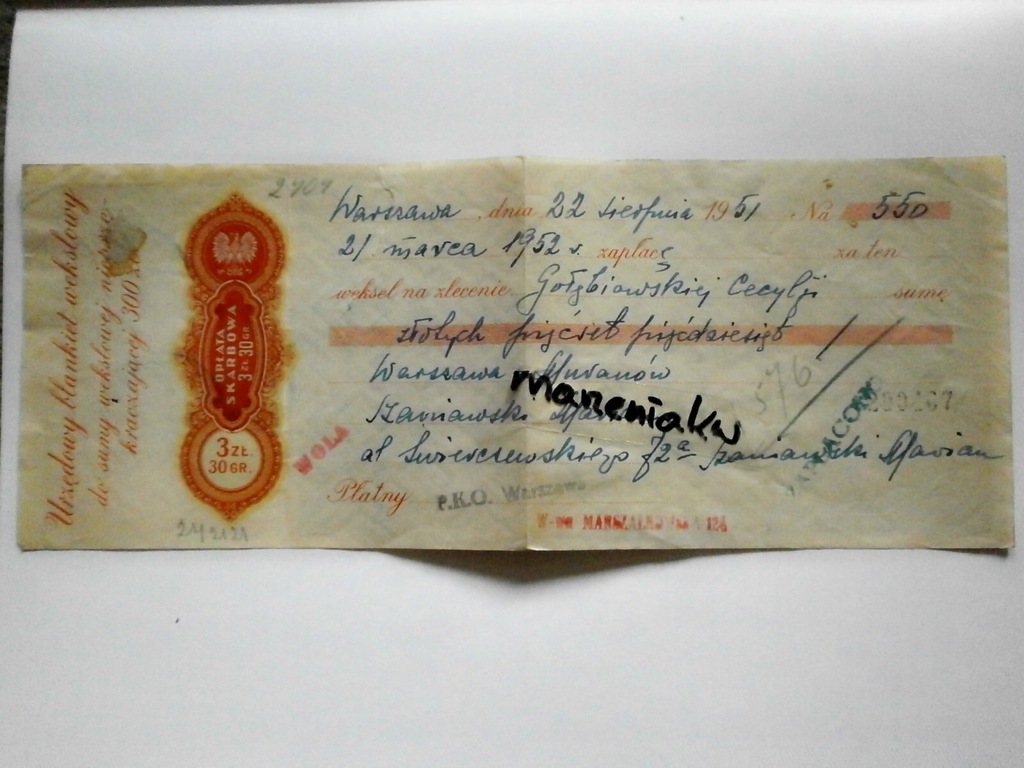 Urzędowy blankiet wekslowy
do sumy wekslowej nieprze-
kraczającej 300 zł.
OPŁATA
SKARBOWA
3 ZŁ 30 GR.
3 ZŁ.
30 GR.
Warszawa, dnia 22 sierpnia 1951 Na 550
21 marca 1952 r. zapłacę za ten
weksel na zlecenie Gołębiowskiej Cecylji sumę
złotych pięćset pięćdziesiąt
Warszawa Muranów
maneniaku
576
Szaniawski
al Świerczewskiego 72a Szaniawski Marian
WOLA
ZAPŁACONY
Płatny P.K.O. Warszawa
W-wa MARSZAŁKOWSKA 124